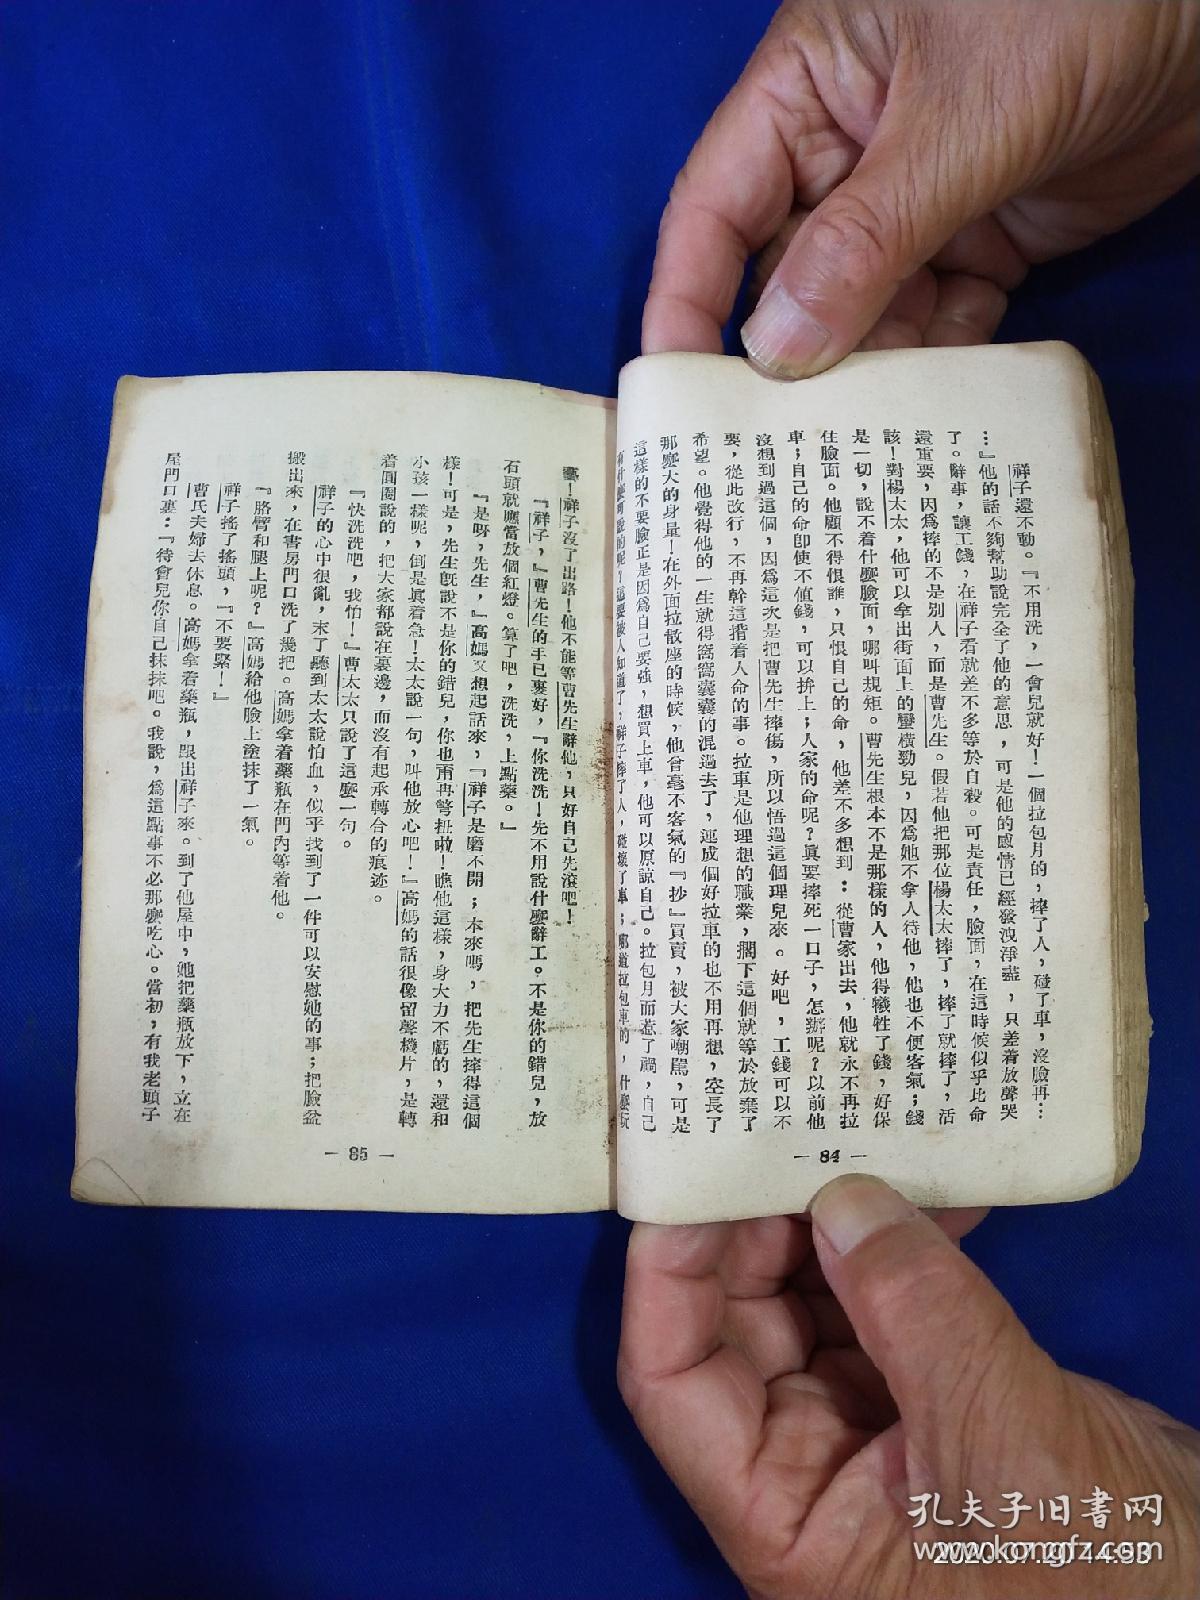 祥子還不動。『不用洗，一會兒就好！一個拉包月的，摔了人，碰了車，沒臉再…
…』他的話不夠幫助說完全了他的意思，可是他的感情已經發洩淨盡，只差着放聲哭
了。辭事，讓工錢，在祥子看就差不多等於自殺。可是責任，臉面，在這時候似乎比命
還重要，因爲摔的不是別人，而是曹先生。假若他把那位楊太太摔了，摔了就摔了，活
該！對楊太太，他可以拿出街面上的蠻橫勁兒，因爲她不拿人待他，他也不便客氣；錢
是一切，說不着什麼臉面，哪叫規矩。曹先生根本不是那樣的人，他得犧牲了錢，好保
住臉面。他顧不得恨誰，只恨自己的命，他差不多想到：從曹家出去，他就永不再拉
車；自己的命即使不值錢，可以拚上；人家的命呢？眞要摔死一口子，怎辦呢？以前他
沒想到過這個，因爲這次是把曹先生摔傷，所以悟過這個理兒來。好吧，工錢可以不
要，從此改行，不再幹這揹着人命的事。拉車是他理想的職業，擱下這個就等於放棄了
希望。他覺得他的一生就得窩窩囊囊的混過去了，連成個好拉車的也不用再想，空長了
那麼大的身量！在外面拉散座的時候，他曾毫不客氣的『抄』買賣，被大家嘲罵，可是
這樣的不要臉正是因爲自己要強，想買上車，他可以原諒自己。拉包月而惹了禍，自己
有什麼可說的呢？這要被人知道了，祥子摔了人，碰壞了車；哪道拉包車的，什麼玩
— 84 —
藝！祥子沒了出路！他不能等曹先生辭他，只好自己先滾吧！
『祥子，』曹先生的手已裹好，『你洗洗！先不用說什麼辭工。不是你的錯兒，放
石頭就應當放個紅燈。算了吧，洗洗，上點藥。』
『是呀，先生，』高媽又想起話來，『祥子是磨不開；本來嗎，把先生摔得這個
樣！可是，先生旣說不是你的錯兒，你也甭再彆扭啦！瞧他這樣，身大力不虧的，還和
小孩一樣呢，倒是眞着急！太太說一句，叫他放心吧！』高媽的話很像留聲機片，是轉
着圓圈說的，把大家都說在裏邊，而沒有起承轉合的痕迹。
『快洗洗吧，我怕！』曹太太只說了這麼一句。
祥子的心中很亂，末了聽到太太說怕血，似乎找到了一件可以安慰她的事；把臉盆
搬出來，在書房門口洗了幾把。高媽拿着藥瓶在門內等着他。
『胳臂和腿上呢？』高媽給他臉上塗抹了一氣。
祥子搖了搖頭，『不要緊！』
曹氏夫婦去休息。高媽拿着藥瓶，跟出祥子來。到了他屋中，她把藥瓶放下，立在
屋門口裏：『待會兒你自己抹抹吧。我說，爲這點事不必那麼吃心。當初，有我老頭子
— 85 —
孔夫子旧書网
www.kongfz.com
2020.07.20 14:53